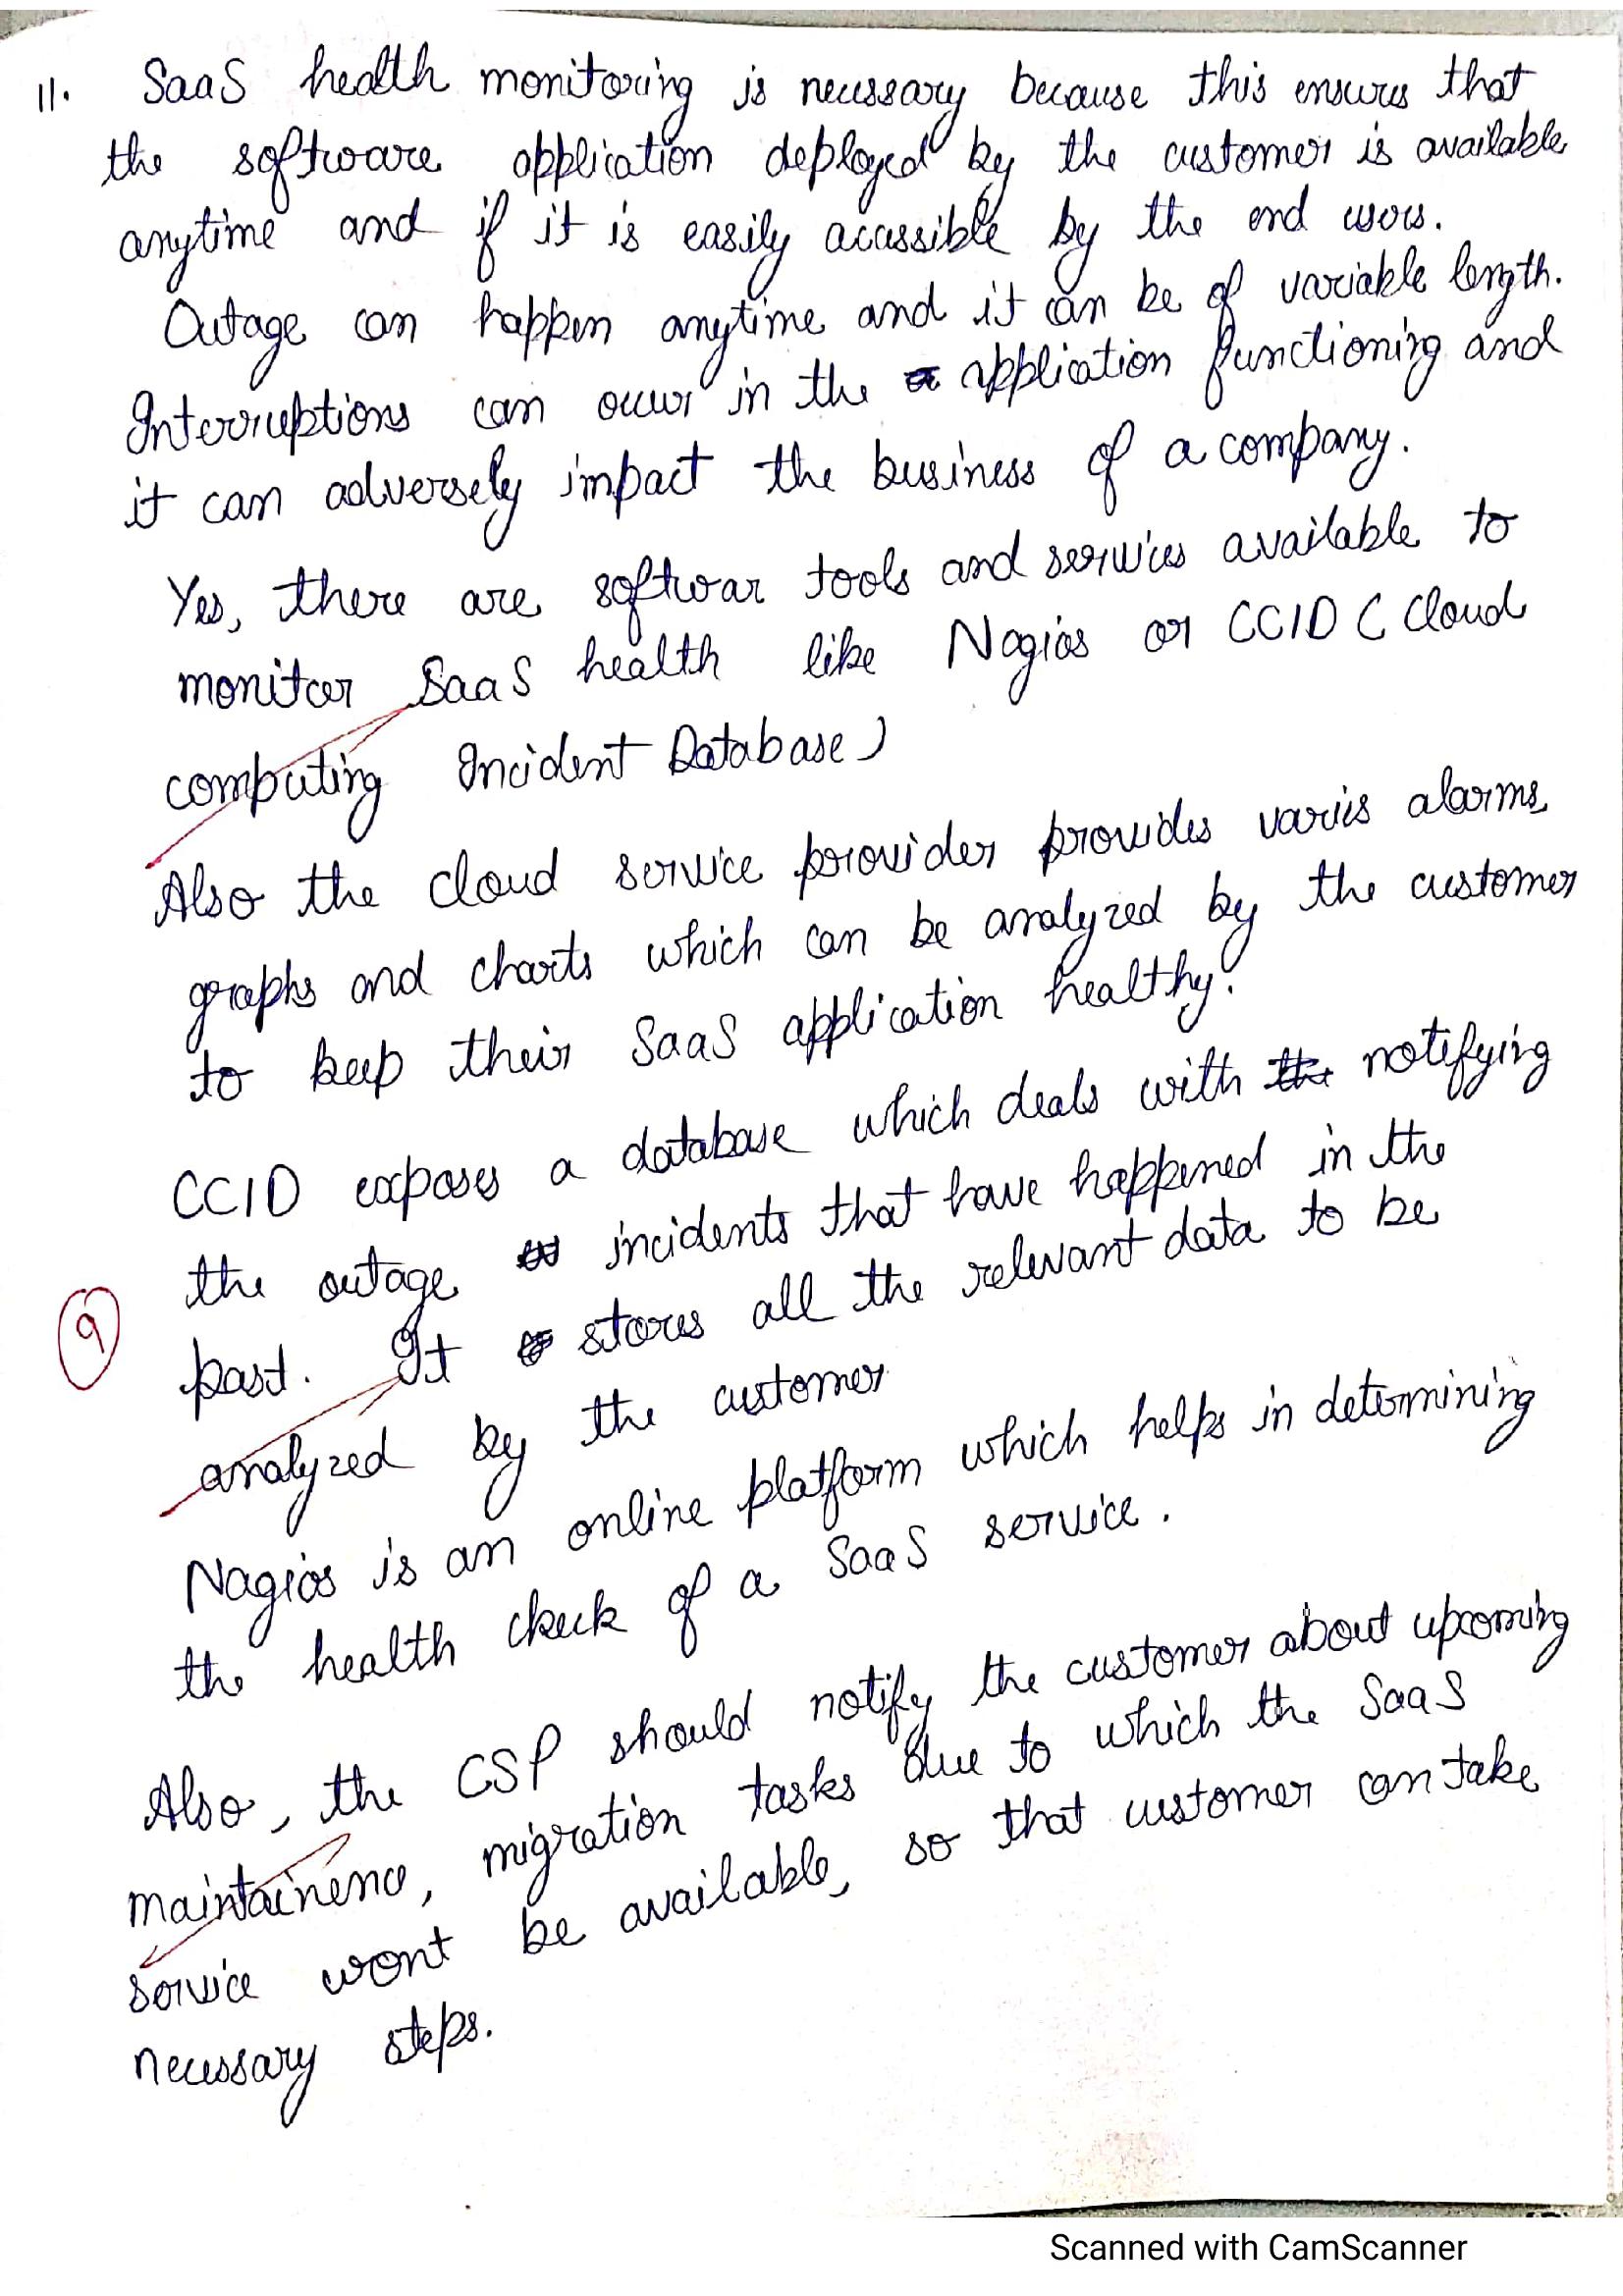 11. SaaS health monitoring is necessary because this ensures that
the software application deployed by the customer is available
anytime and if it is easily acassible by the end users.
Outage can happen anytime and it can be of variable length.
Interruptions can occur in the application functioning and
it can adversely impact the business of a company.
Yes, there are softwar tools and services available to
monitor SaaS health like Nagios or CCID ( Cloud
computing Incident Database)
Also the cloud service provider provides varies alarms,
graphs and charts which can be analyzed by the customer
to keep their SaaS application healthy.
CCID exposes a database which deals with notifying
the outage incidents that have happened in the
past. It stores all the relevant data to be
9
analyzed by the customer
Nagios is an online platform which helps in determining
the health check of a SaaS service.
Also, the CSP should notify the customer about upcoming
maintainence, migration tasks due to which the SaaS
service wont be available, so that customer can take
necessary steps.
Scanned with CamScanner